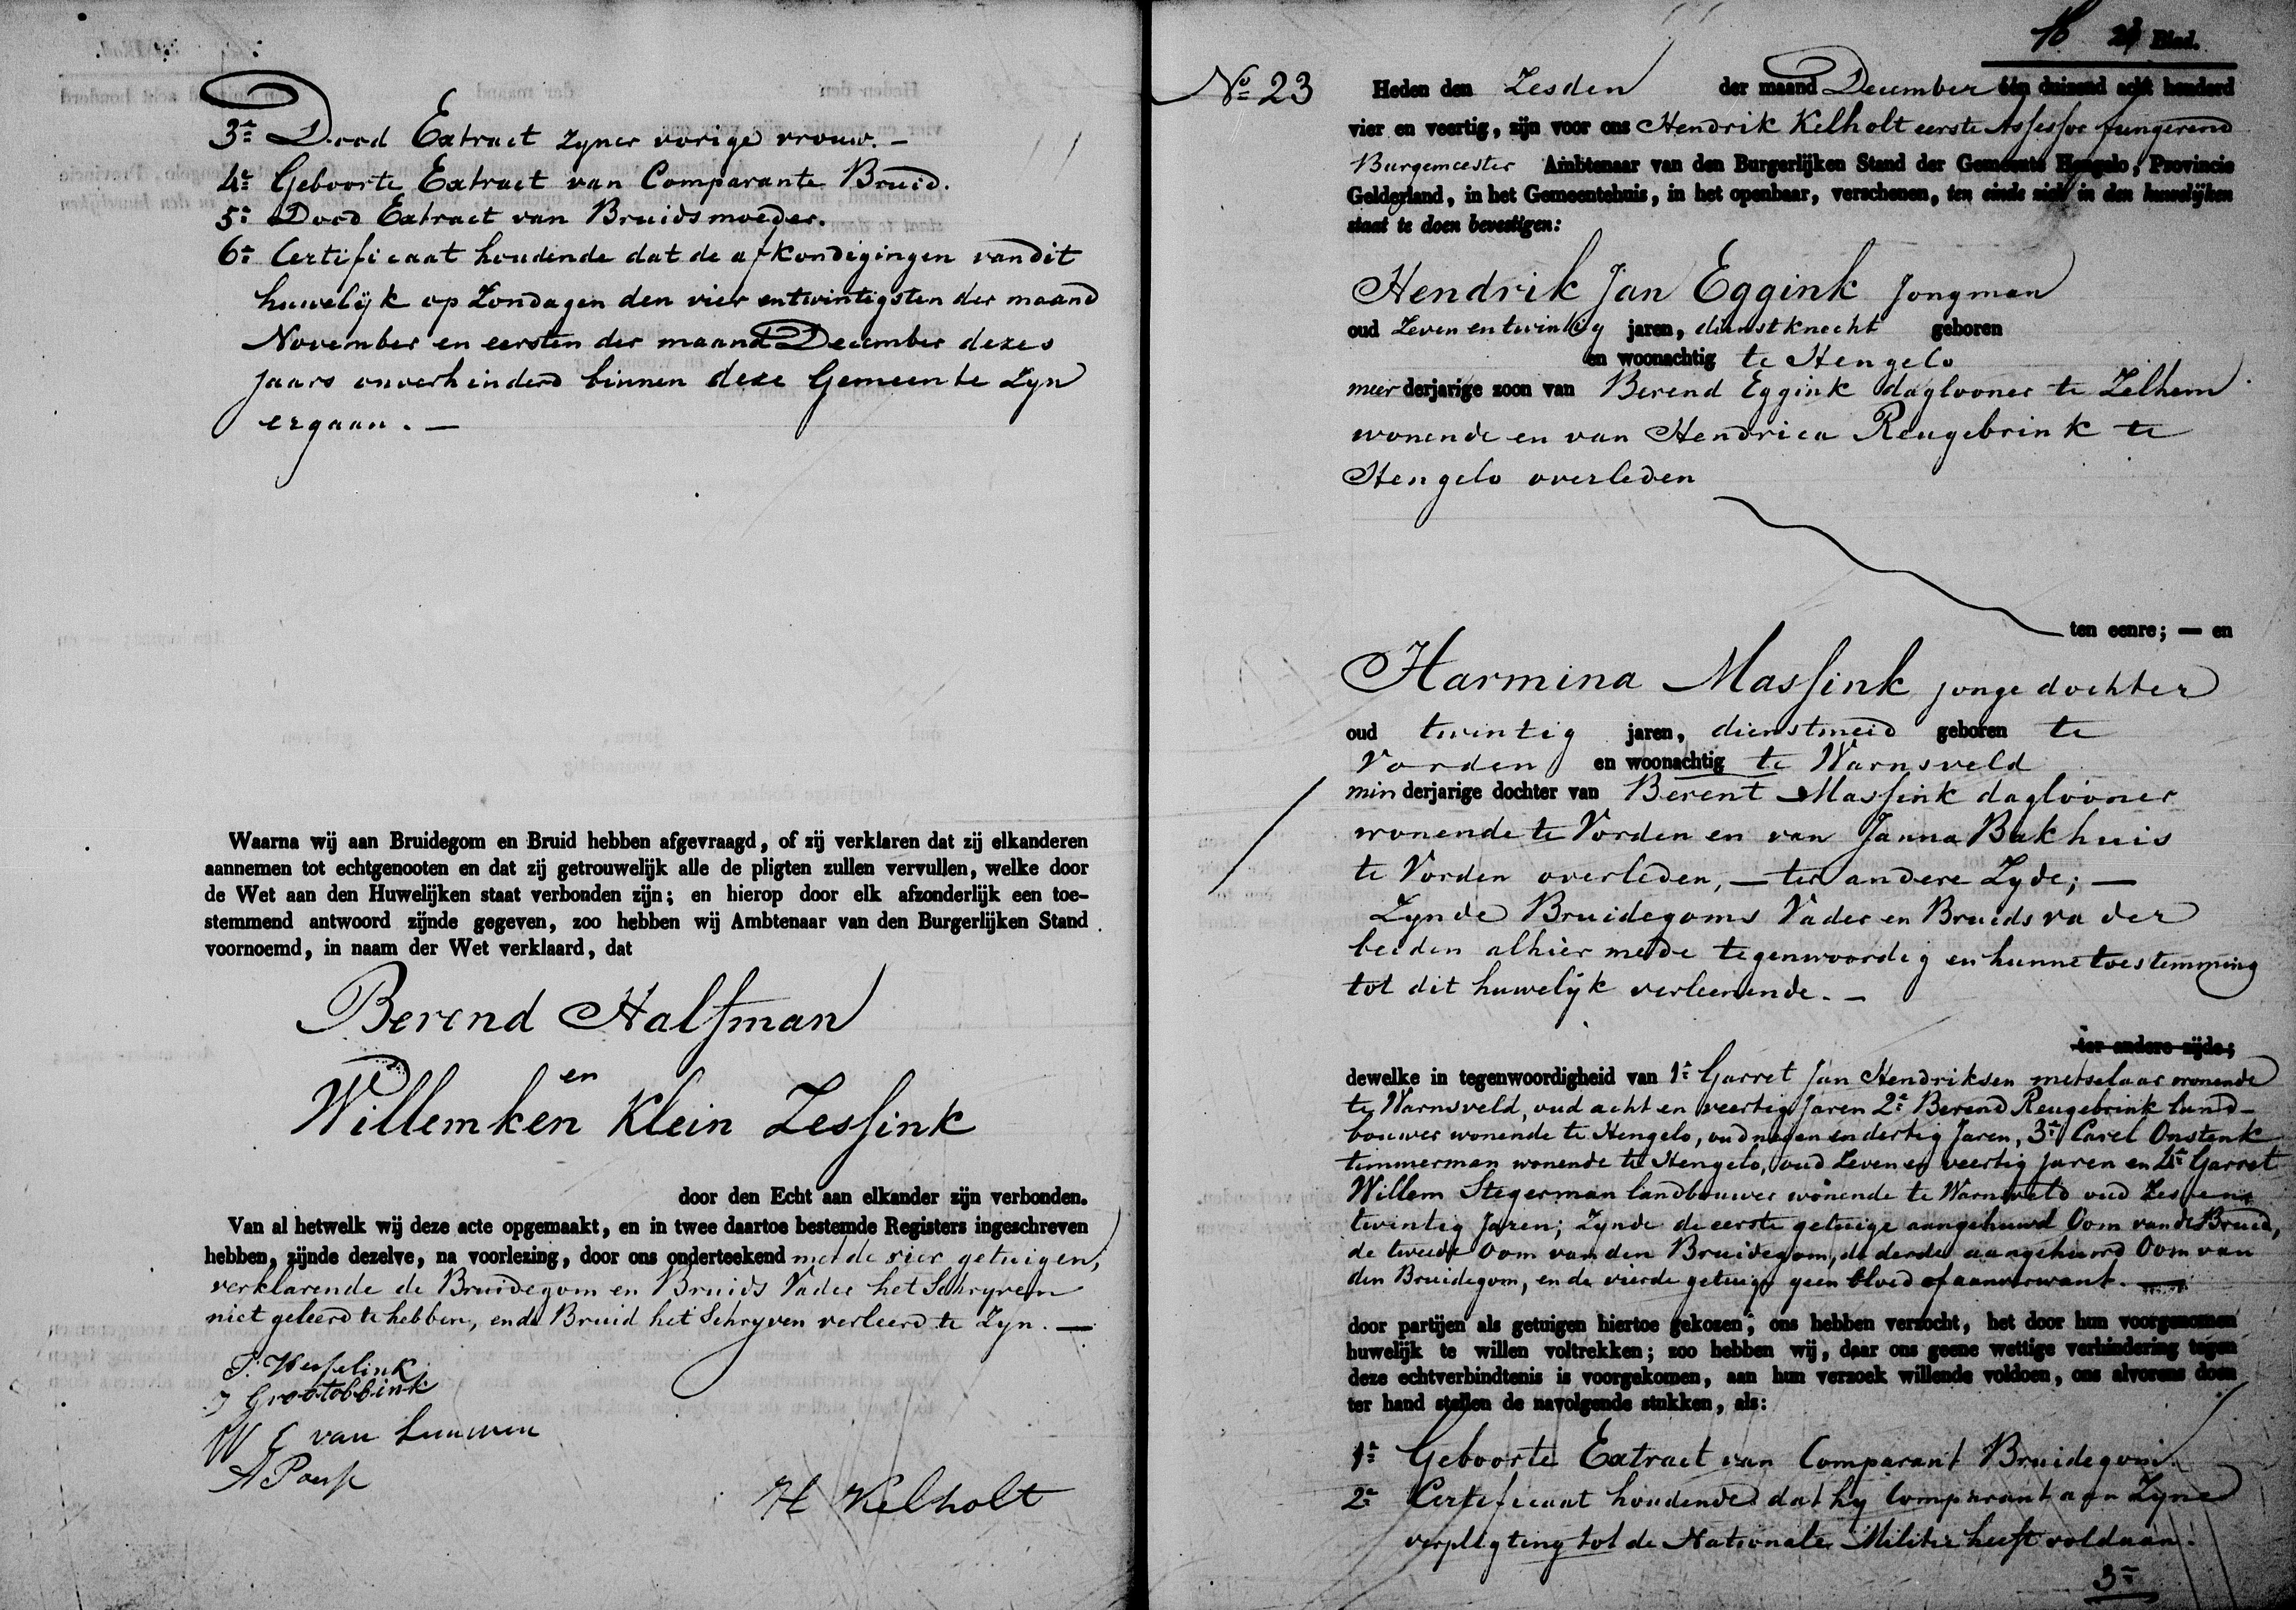 3e Dood Extract zyner vorige vrouw. —
4e Geboorte Extract van Comparante Bruid.
5e Dood Extract van Bruidsmoeder.
6e Certificaat houdende dat de afkondigingen van dit
huwelijk op Zondagen den vier entwintigsten der maand
November en eersten der maand December dezes
jaars onverhinderd binnen deze Gemeente Zyn
ergaan. —
Waarna wij aan Bruidegom en Bruid hebben afgevraagd, of zij verklaren dat zij elkanderen
aannemen tot echtgenooten en dat zij getrouwelijk alle de pligten zullen vervullen, welke door
de Wet aan den Huwelijken staat verbonden zijn; en hierop door elk afzonderlijk een toe-
stemmend antwoord zijnde gegeven, zoo hebben wij Ambtenaar van den Burgerlijken Stand
voornoemd, in naam der Wet verklaard, dat
Berend Halfman
en
Willemken Klein Lessink
door den Echt aan elkander zijn verbonden.
Van al hetwelk wij deze acte opgemaakt, en in twee daartoe bestemde Registers ingeschreven
hebben, zijnde dezelve, na voorlezing, door ons onderteekend met de vier getuigen,
verklarende de Bruidegom en Bruids Vader het Schryven
niet geleerd te hebben, en de Bruid het Schryven verleerd te Zyn. —
Wesselink
Grootobbink
W van Leeuwen
A
H Kelholt
Blad.
No 23
Heden den Zesden der maand December één duizend acht honderd
vier en veertig, zijn voor ons Hendrik Kelholt eerste Assessor fungerend
Burgemeester Ambtenaar van den Burgerlijken Stand der Gemeente Hengelo, Provincie
Gelderland, in het Gemeentehuis, in het openbaar, verschenen, ten einde zich in den huwelijken
staat te doen bevestigen:
Hendrik Jan Eggink Jongman
oud Zeven en twintig jaren, dienstknecht geboren
en woonachtig te Hengelo
meerderjarige zoon van Berend Eggink daglooner te Zelhem
wonende en van Hendrica Reugebrink te
Hengelo overleden
ten eenre; — en
Harmina Massink jonge dochter
oud twintig jaren, dienstmeid geboren te
Vorden en woonachtig te Warnsveld
minderjarige dochter van Berent Massink daglooner
wonende te Vorden en van Janna Bakhuis
te Vorden overleden, — ter andere Zyde; —
Zynde Bruidegoms Vader en Bruids vader
beiden alhier mede tegenwoordig en hunne toestemming
tot dit huwelyk verleenende. —
ter andere zijde;
dewelke in tegenwoordigheid van 1e Garret Jan Hendriksen metselaar wonende
te Warnsveld, oud acht en veertig Jaren 2e Berend Reugebrink land-
bouwer wonende te Hengelo, oud negen en dertig Jaren, 3e Carel Onstenk
timmerman wonende te Hengelo, oud Zeven en veertig jaren en 4e Garret
Willem Stegerman landbouwer wonende te Warnsveld oud Zes en
twintig Jaren; Zynde de eerste getuige aangehuwd Oom van de Bruid,
de tweede Oom van den Bruidegom, de derde aangehuwd Oom van
den Bruidegom, en de vierde getuige geen bloed of aanverwant. —
door partijen als getuigen hiertoe gekozen, ons hebben verzocht, het door hun voorgenomen
huwelijk te willen voltrekken; zoo hebben wij, daar ons geene wettige verhindering tegen
deze echtverbindtenis is voorgekomen, aan hun verzoek willende voldoen, ons alvorens doen
ter hand stellen de navolgende stukken, als:
1e Geboorte Extract van Comparant Bruidegom.
2e Certificaat houdende dat hy Comparant aan Zyne
verpligting tot de Nationale Militie heeft voldaan.
3e